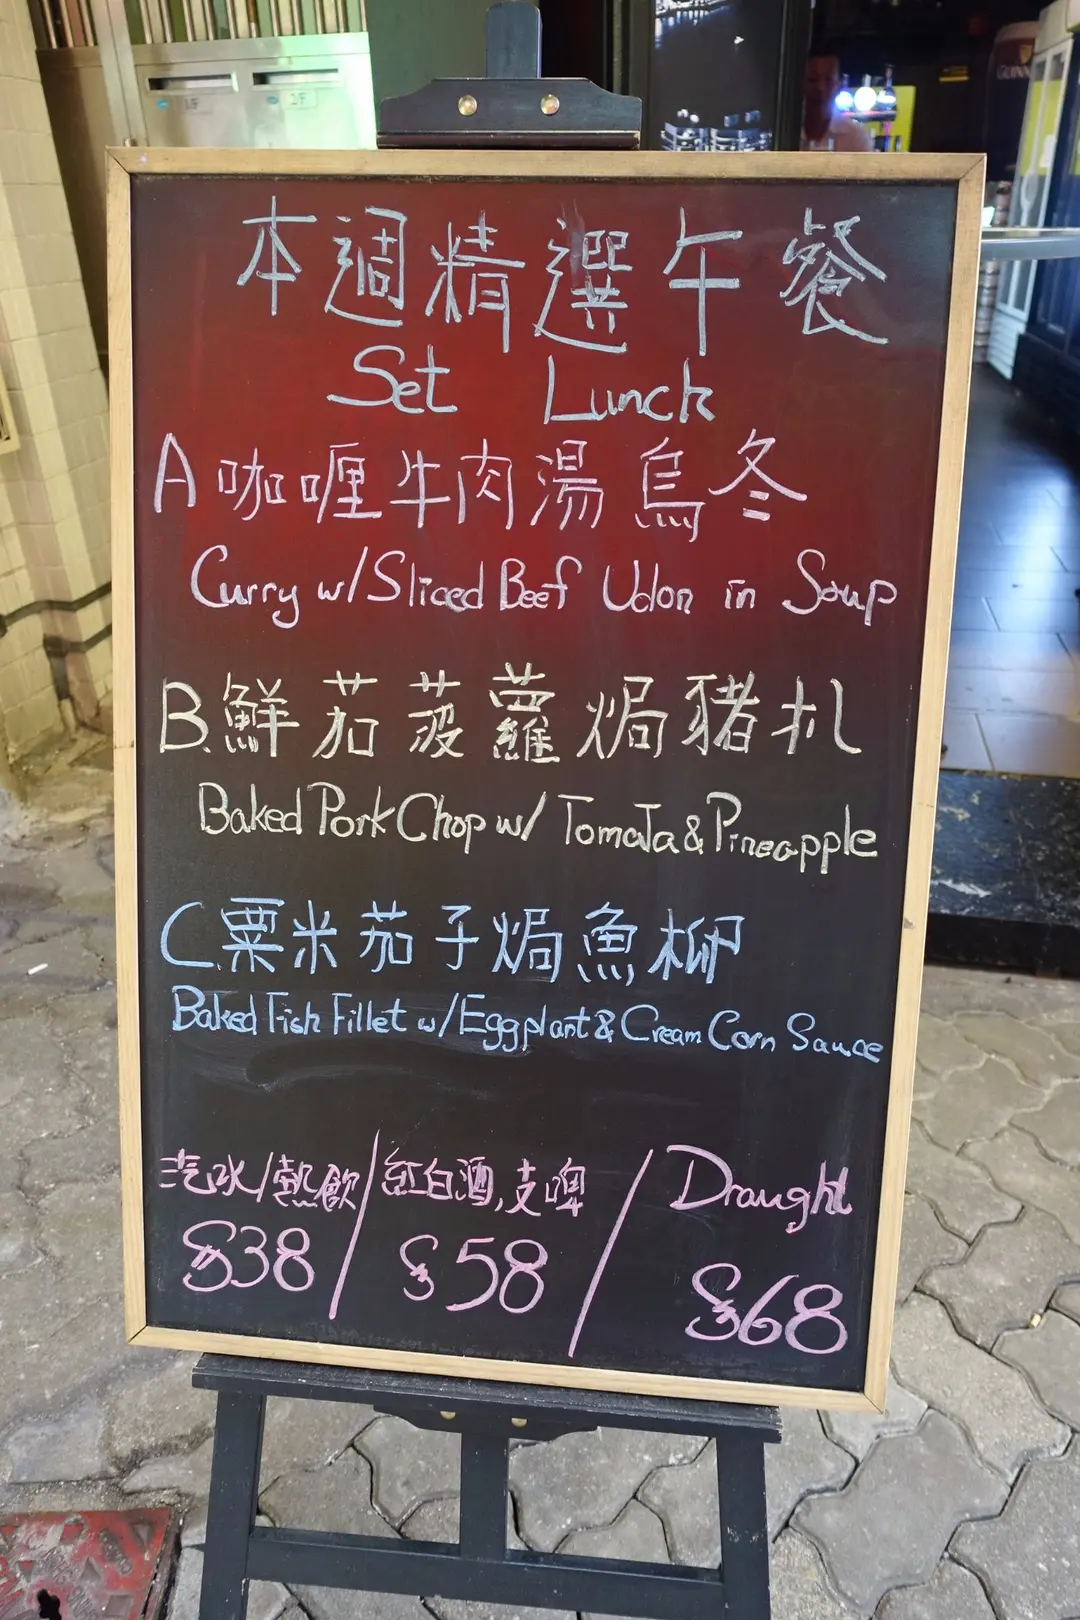 1/F
2/F
GUINN
本週精選午餐
Set Lunch
A 咖喱牛肉湯烏冬
Curry w/ Sliced Beef Udon in Soup
B. 鮮茄菠蘿焗豬扒
Baked Pork Chop w/ Tomata & Pineapple
C. 粟米茄子焗魚柳
Baked Fish Fillet w/ Eggplant & Cream Corn Sauce
汽水/熱飲 / 紅白酒,支啤 / Draught
$38 / $58 / $68